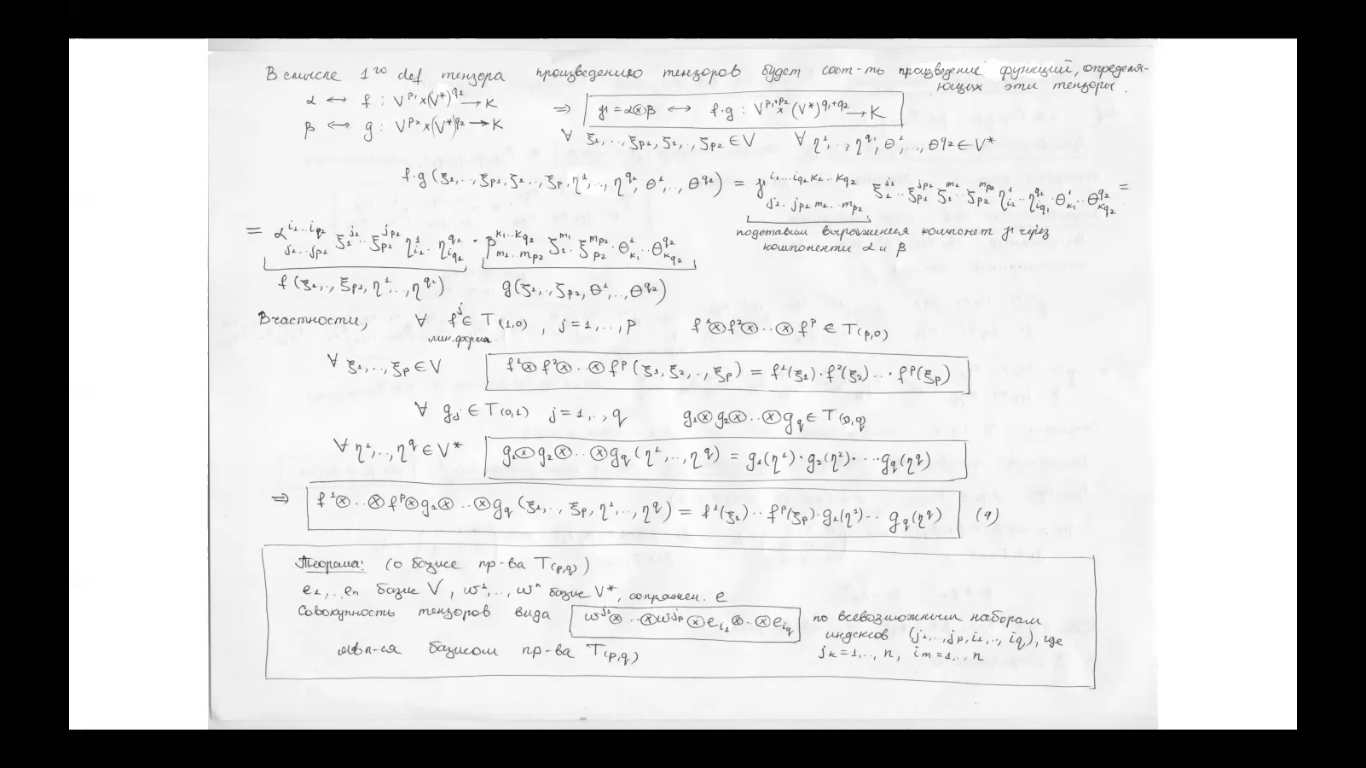 В смысле 1го def тензора произведению тензоров будет соот-ть произведение функций, определя-
ющих эти тензоры.
α ↔ f : V^{p₁}×(V*)^{q₁} → K ⇒ γ = α⊗β ↔ f·g : V^{p₁+p₂}×(V*)^{q₁+q₂} → K
β ↔ g : V^{p₂}×(V*)^{q₂} → K
∀ ξ₁,..,ξ_{p₁}, ζ₁,.,ζ_{p₂} ∈ V ∀ η¹,..,η^{q₁}, θ¹,..,θ^{q₂} ∈ V*
f·g (ξ₁,..,ξ_{p₁}, ζ₁,..,ζ_p, η¹,..,η^{q₁}, θ¹,..,θ^{q₂}) = γ^{i₁...i_{q₁}k₁..k_{q₂}}_{j₁..j_{p₁}m₁..m_{p₂}} ξ₁^{j₁}..ξ_{p₁}^{j_{p₁}} ζ₁^{m₁}..ζ_{p₂}^{m_{p₂}} η¹_{i₁}..η^{q₁}_{i_{q₁}}·θ¹_{k₁}..θ^{q₂}_{k_{q₂}} =
подставим выражения компонент γ через
компоненты α и β
= α^{i₁..i_{q₁}}_{j₁...j_{p₁}} ξ₁^{j₁}..ξ_{p₁}^{j_{p₁}} η¹_{i₁}..η^{q₁}_{i_{q₁}} · β^{k₁..k_{q₂}}_{m₁..m_{p₂}} ζ₁^{m₁}..ζ_{p₂}^{m_{p₂}}·θ¹_{k₁}..θ^{q₂}_{k_{q₂}}
f(ξ₁,.,ξ_{p₁}, η¹,..,η^{q₁}) g(ζ₁,..,ζ_{p₂}, θ¹,..,θ^{q₂})
В частности, ∀ f^j ∈ T(1,0), j=1,..,p f¹⊗f²⊗..⊗f^p ∈ T(p,0)
лин.форма
∀ ξ₁,..,ξ_p ∈ V f¹⊗f²⊗..⊗f^p (ξ₁,ξ₂,.,ξ_p) = f¹(ξ₁)·f²(ξ₂)..·f^p(ξ_p)
∀ g_j ∈ T(0,1) j=1,..,q g₁⊗g₂⊗..⊗g_q ∈ T(0,q)
∀ η¹,..,η^q ∈ V* g₁⊗g₂⊗..⊗g_q (η¹,..,η^q) = g₁(η¹)·g₂(η²)·...g_q(η^q)
⇒ f¹⊗..⊗f^p⊗g₁⊗..⊗g_q (ξ₁,.,ξ_p, η¹,..,η^q) = f¹(ξ₁)..f^p(ξ_p)·g₁(η¹)..g_q(η^q) (4)
Теорема: (о базисе пр-ва T(p,q))
e₁,..e_n базис V, w¹,..,w^n базис V*, сопряжен. e
Совокупность тензоров вида w^{j₁}⊗..⊗w^{j_p}⊗e_{i₁}⊗..⊗e_{i_q} по всевозможным наборам
индексов (j₁,..,j_p, i₁,.,i_q), где
явл-ся базисом пр-ва T(p,q) j_k=1,..,n, i_m=1,..,n